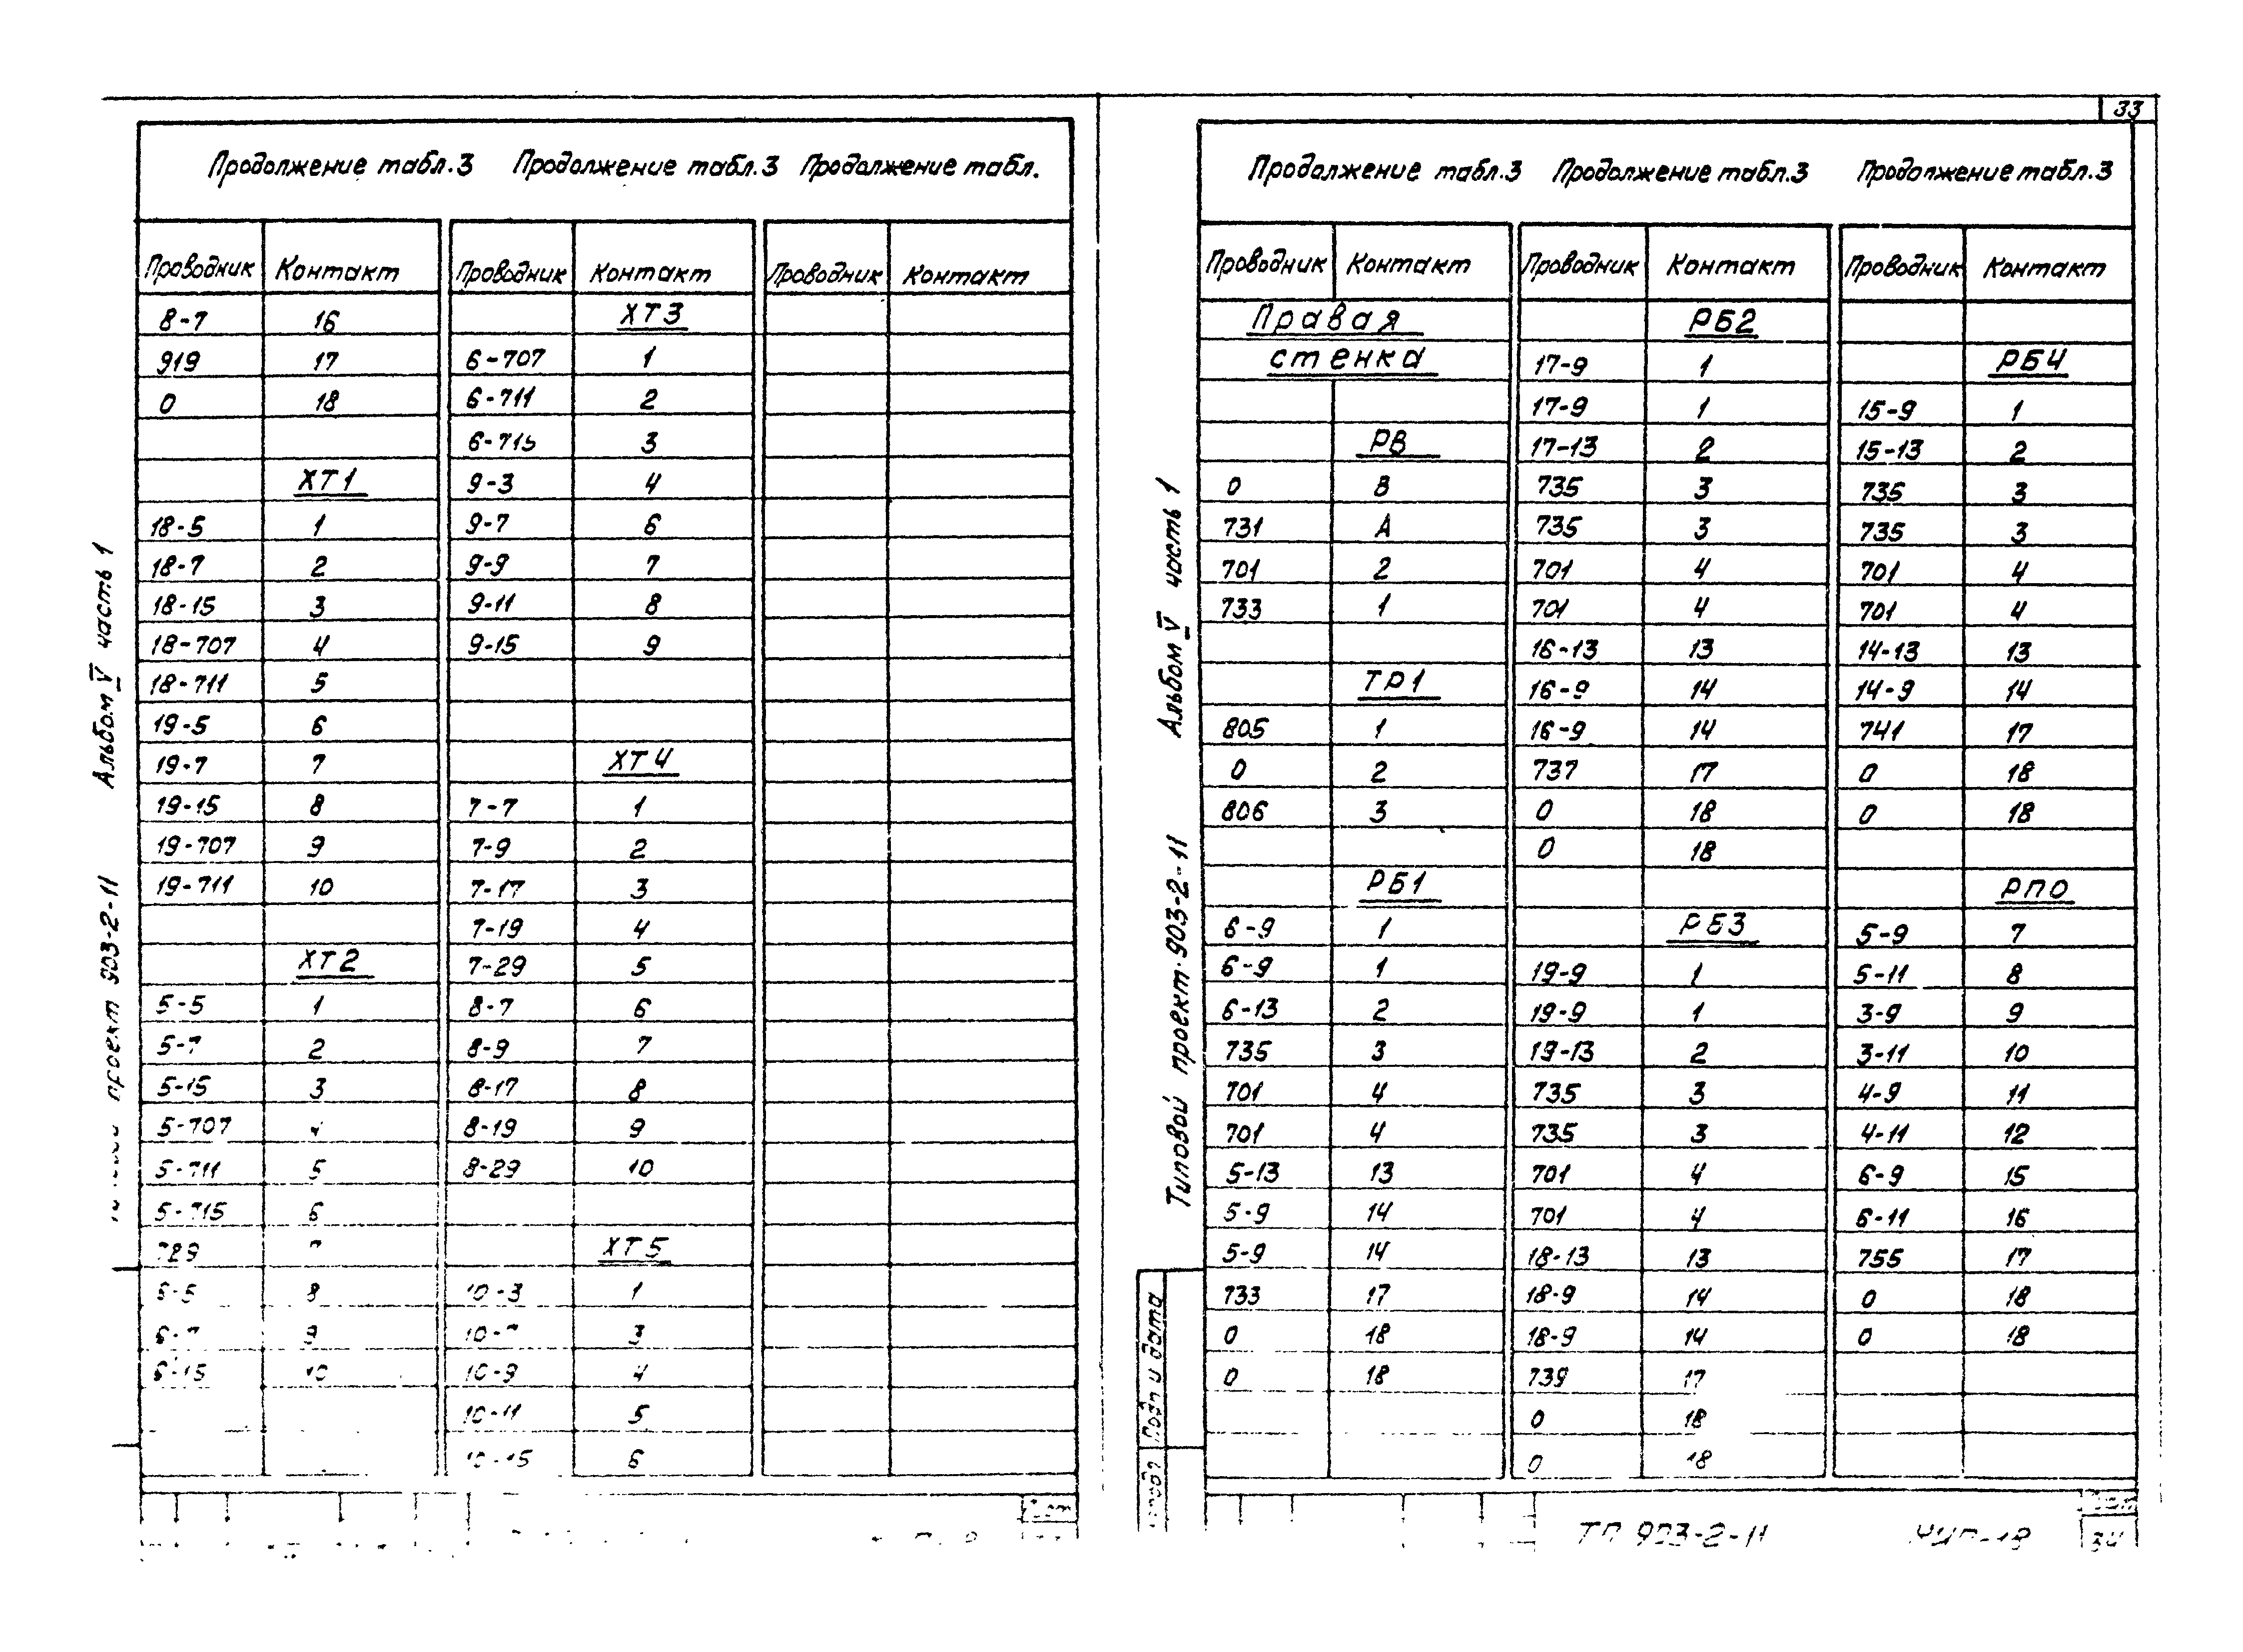 33
Продолжение табл.3 Продолжение табл.3 Продолжение табл.
Проводник Контакт Проводник Контакт Проводник Контакт
8-7 16 ХТ3
919 17 6-707 1
0 18 6-711 2
6-715 3
ХТ1 9-3 4
18-5 1 9-7 6
18-7 2 9-9 7
18-15 3 9-11 8
18-707 4 9-15 9
18-711 5
19-5 6
19-7 7 ХТ4
19-15 8 7-7 1
19-707 9 7-9 2
19-711 10 7-17 3
7-19 4
ХТ2 7-29 5
5-5 1 8-7 6
5-7 2 8-9 7
5-15 3 8-17 8
5-707 4 8-19 9
5-711 5 8-29 10
5-715 6
789 7 ХТ5
6-5 8 10-3 1
6-7 9 10-7 3
6-15 10 10-9 4
10-11 5
10-15 6
Альбом V часть 1
проект 903-2-11
Продолжение табл.3 Продолжение табл.3 Продолжение табл.3
Проводник Контакт Проводник Контакт Проводник Контакт
Правая РБ2
стенка 17-9 1 РБ4
17-9 1 15-9 1
РВ 17-13 2 15-13 2
0 В 735 3 735 3
731 А 735 3 735 3
701 2 701 4 701 4
733 1 701 4 701 4
16-13 13 14-13 13
ТР1 16-9 14 14-9 14
805 1 16-9 14 741 17
0 2 737 17 0 18
806 3 0 18 0 18
0 18
РБ1 РПО
6-9 1 РБ3 5-9 7
6-9 1 19-9 1 5-11 8
6-13 2 19-9 1 3-9 9
735 3 19-13 2 3-11 10
701 4 735 3 4-9 11
701 4 735 3 4-11 12
5-13 13 701 4 6-9 15
5-9 14 701 4 6-11 16
5-9 14 18-13 13 755 17
733 17 18-9 14 0 18
0 18 18-9 14 0 18
0 18 739 17
0 18
0 18
Альбом V часть 1
Типовой проект 903-2-11
Подп и дата
Лист
ТП 903-2-11 34